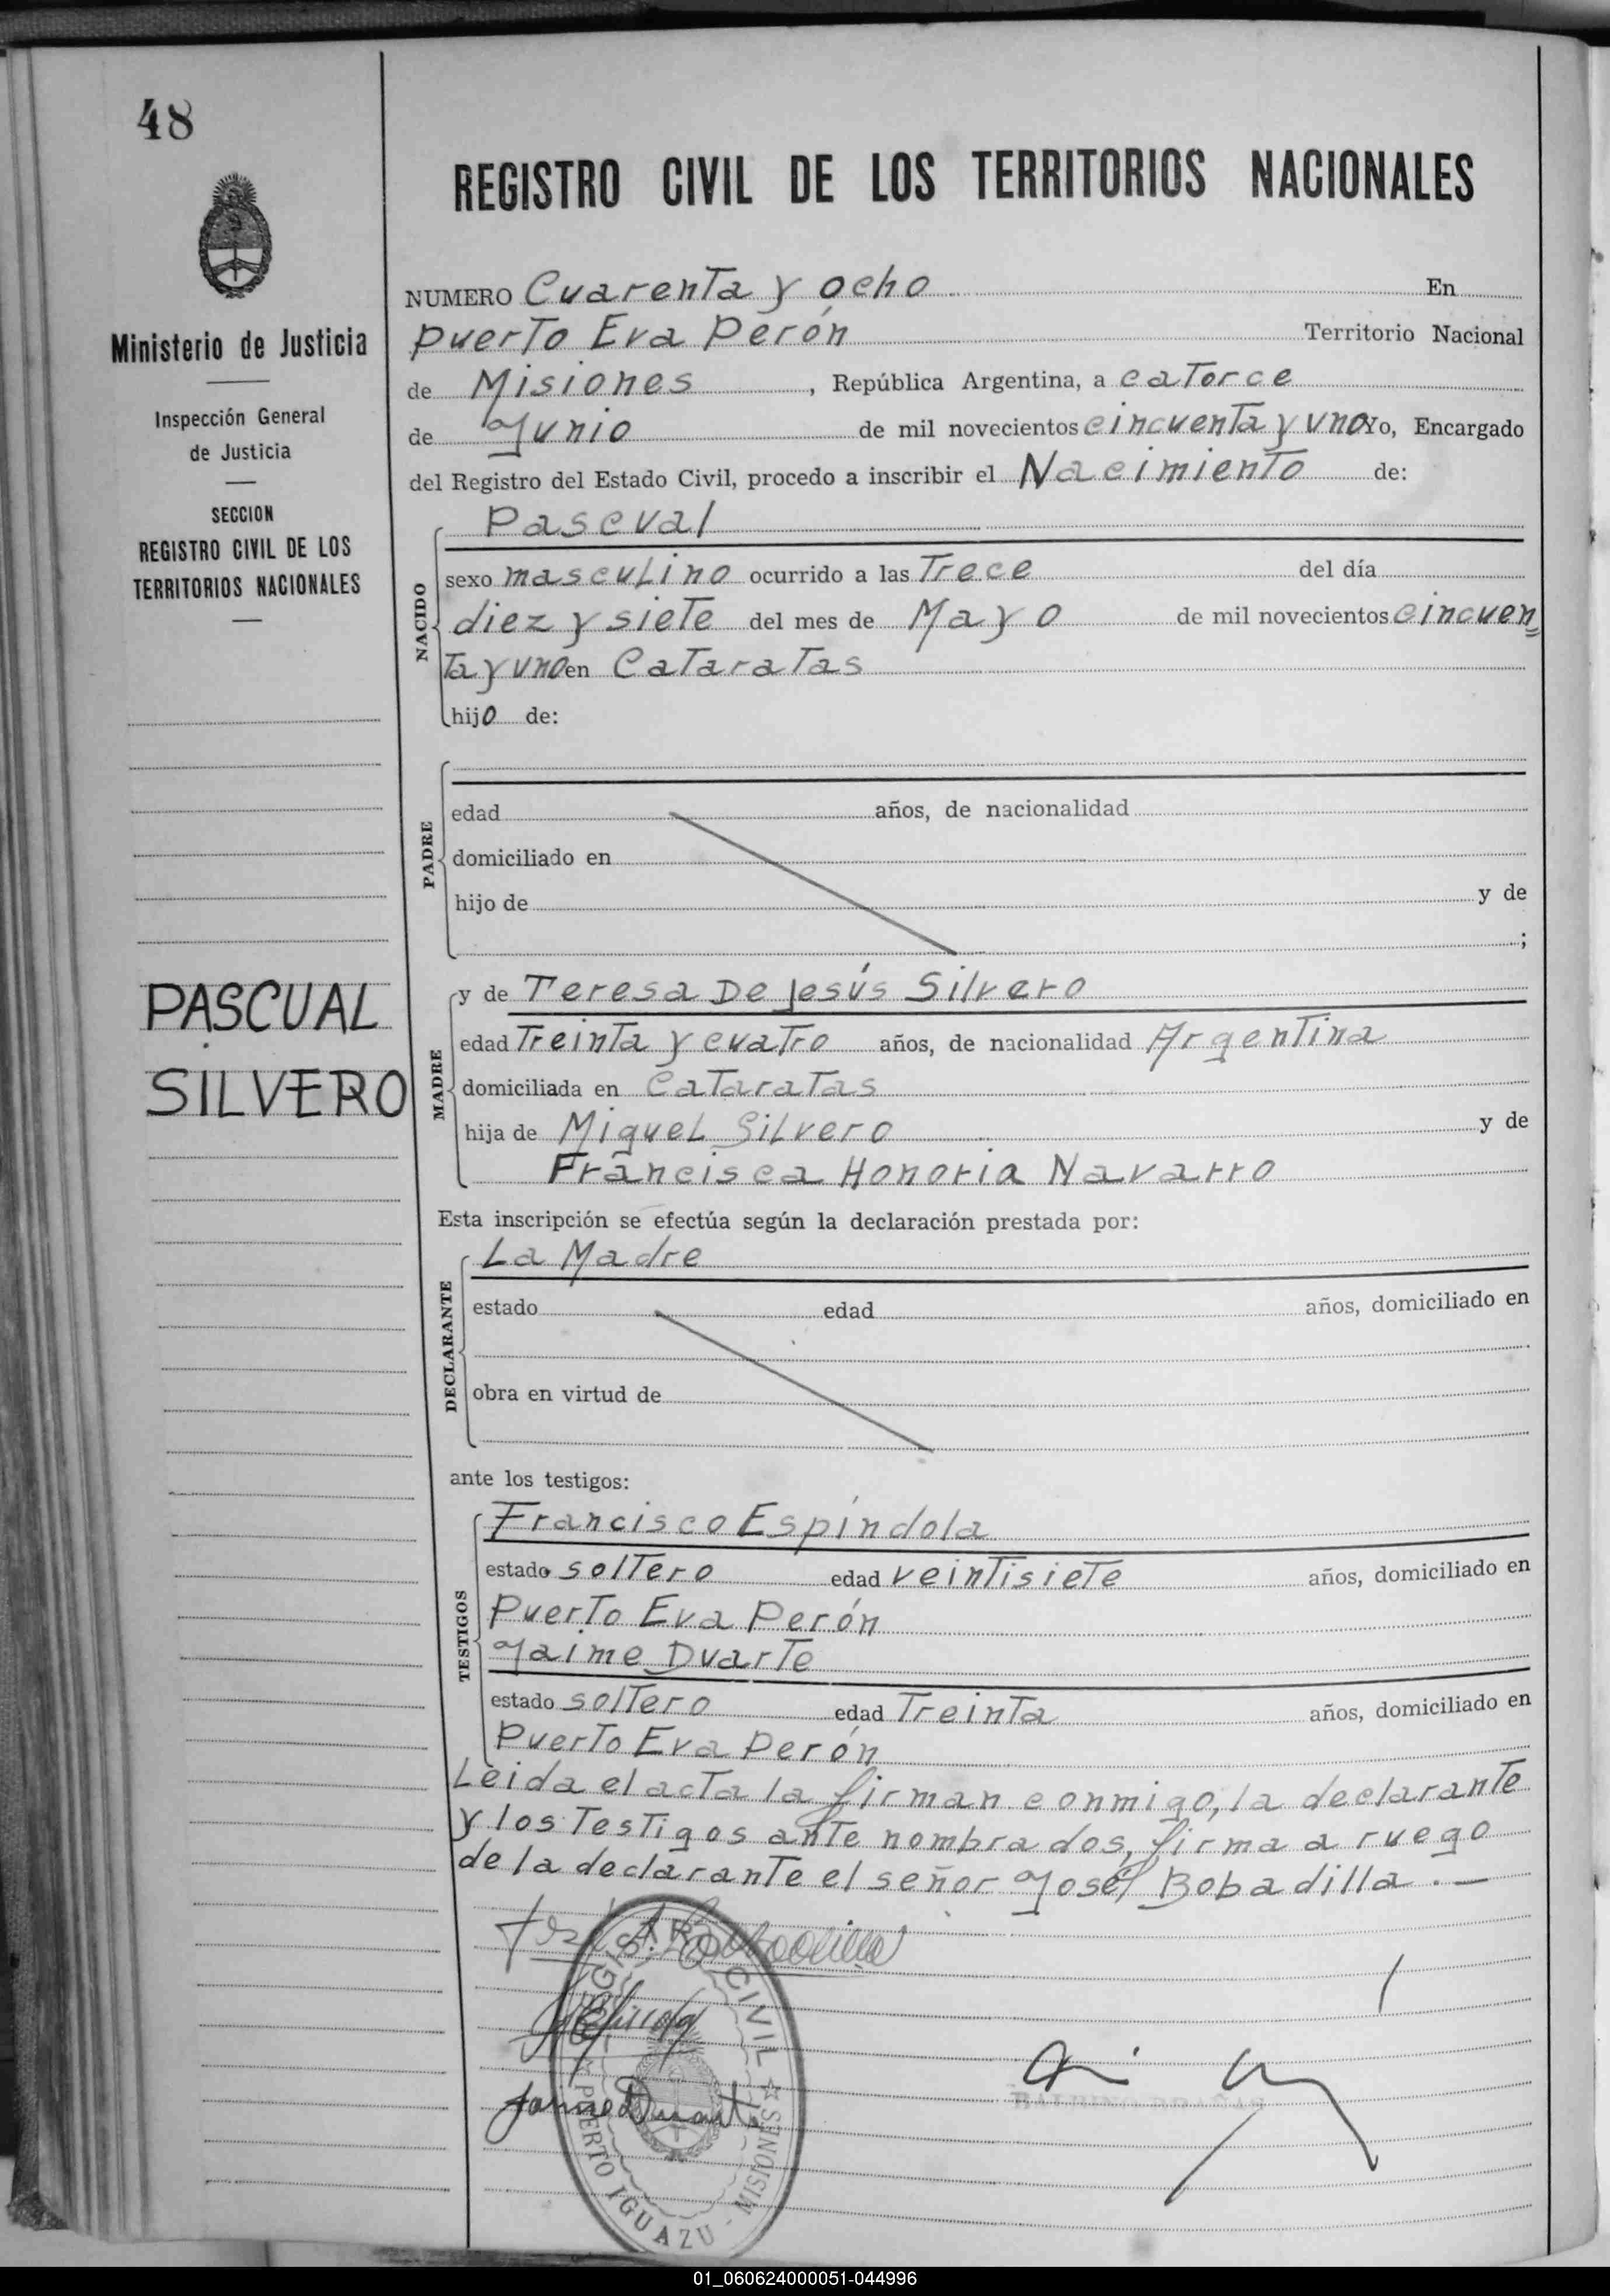 48
Ministerio de Justicia
Inspección General
de Justicia
SECCION
REGISTRO CIVIL DE LOS
TERRITORIOS NACIONALES
PASCUAL
SILVERO
REGISTRO CIVIL DE LOS TERRITORIOS NACIONALES
NUMERO Cuarenta y ocho En
Puerto Eva Perón Territorio Nacional
de Misiones, República Argentina, a catorce
de Junio de mil novecientos cincuenta y uno Yo, Encargado
del Registro del Estado Civil, procedo a inscribir el Nacimiento de:
NACIDO
Pascual
sexo masculino ocurrido a las Trece del día
diez y siete del mes de Mayo de mil novecientos cincuen=
ta y uno en Cataratas
hijo de:
PADRE
edad años, de nacionalidad
domiciliado en
hijo de y de
;
MADRE
y de Teresa De Jesús Silvero
edad Treinta y cuatro años, de nacionalidad Argentina
domiciliada en Cataratas
hija de Miguel Silvero y de
Francisca Honoria Navarro
Esta inscripción se efectúa según la declaración prestada por:
DECLARANTE
La Madre
estado edad años, domiciliado en
obra en virtud de
ante los testigos:
TESTIGOS
Francisco Espíndola
estado soltero edad veintisiete años, domiciliado en
Puerto Eva Perón
Jaime Duarte
estado soltero edad Treinta años, domiciliado en
Puerto Eva Perón
Leida el acta la firman conmigo, la declarante
y los Testigos ante nombrados, firma a ruego
de la declarante el señor José Bobadilla.—
Jaime Duarte
REGISTRO CIVIL
PUERTO IGUAZU - MISIONES
01_060624000051-044996